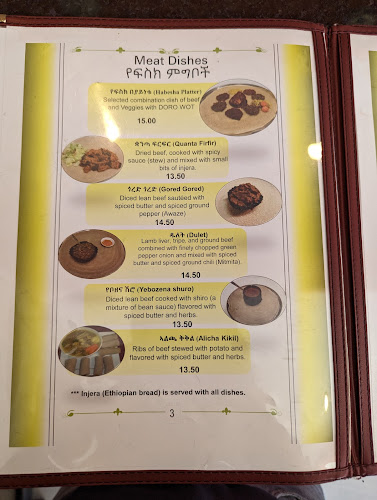 Meat Dishes
የፍስክ ምግቦች
የፍስክ በያይነቱ (Habesha Platter)
Selected combination dish of beef
and Veggies with DORO WOT
15.00
ቋንጣ ፍርፍር (Quanta Firfir)
Dried beef, cooked with spicy
sauce (stew) and mixed with small
bits of injera.
13.50
ጎረድ ጎረድ (Gored Gored)
Diced lean beef sauteed with
spiced butter and spiced ground
pepper (Awaze)
14.50
ዱለት (Dulet)
Lamb liver, tripe, and ground beef
combined with finely chopped green
pepper onion and mixed with spiced
butter and spiced ground chili (Mitmita).
14.50
የቦዘና ሽሮ (Yebozena shuro)
Diced lean beef cooked with shiro (a
mixture of bean sauce) flavored with
spiced butter and herbs.
13.50
አልጫ ቅቅል (Alicha Kikil)
Ribs of beef stewed with potato and
flavored with spiced butter and herbs.
13.50
*** Injera (Ethiopian bread) is served with all dishes.
3